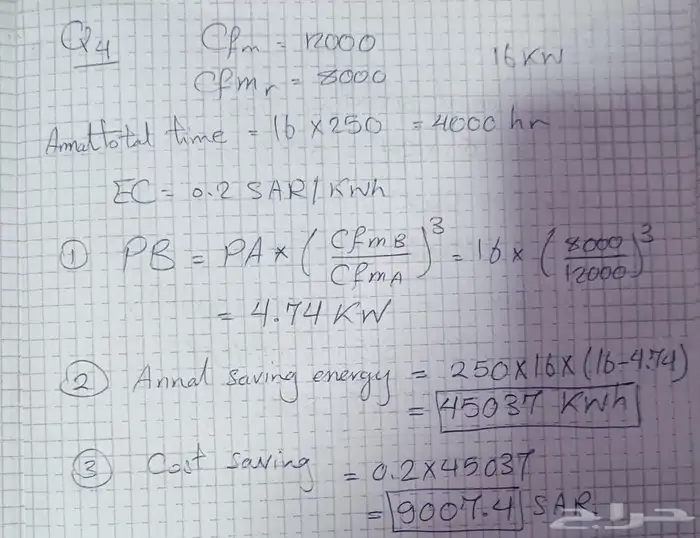 Q4 Cfm = 12000
Cfmr = 8000 16 KW
Annal total time = 16 × 250 = 4000 hr
EC = 0.2 SAR / KWh
① PB = PA * (CfmB / CfmA)^3 = 16 × (8000 / 12000)^3
= 4.74 KW
② Annal saving energy = 250×16×(16-4.74)
= 45037 KWh
③ Cost saving = 0.2×45037
= 9007.4 SAR.
حراج